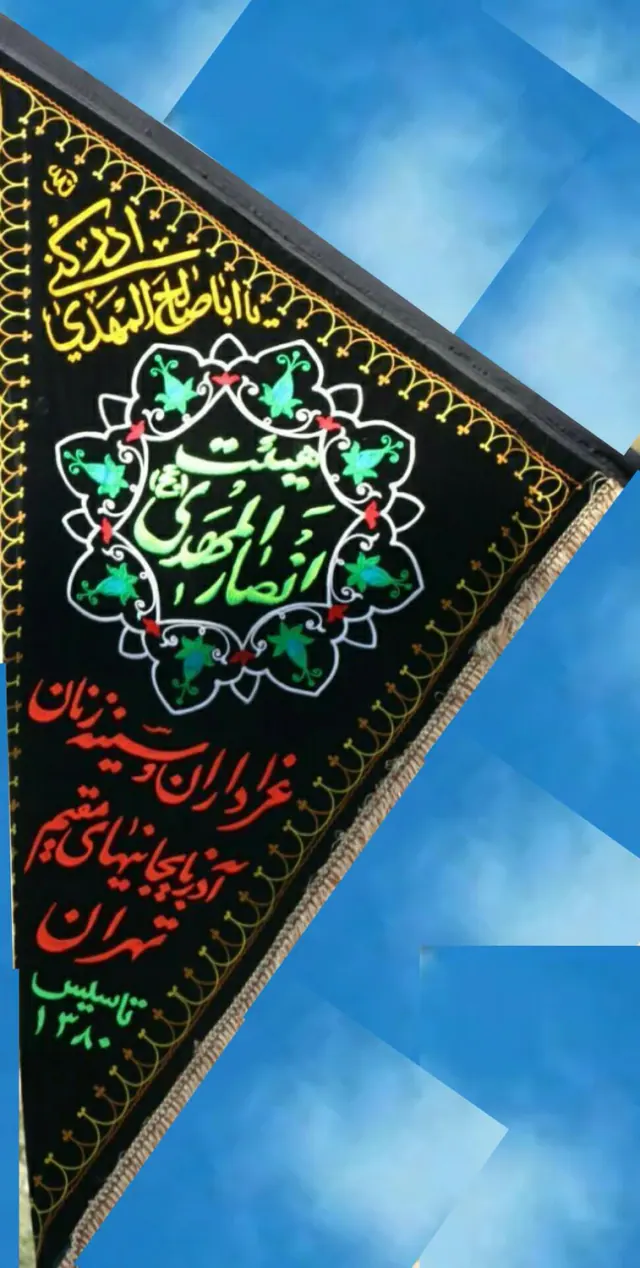 یا اباصالح المهدی
ادرکنی
هیئت
انصار المهدی (عج)
عزاداران و سینه زنان
آذربایجانیهای مقیم
تهران
تاسیس
۱۳۸۰